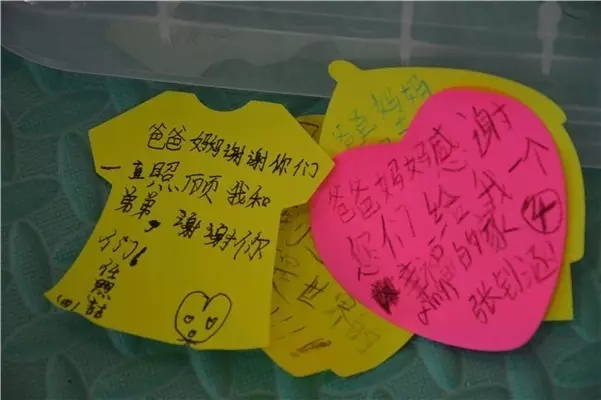 爸爸妈妈谢谢你们
一直照顾我和
弟弟，谢谢你
们
任照喆
(四)
爸爸妈妈感谢
您们给我一个
幸福的家
④
张钊
爸爸妈妈
世界